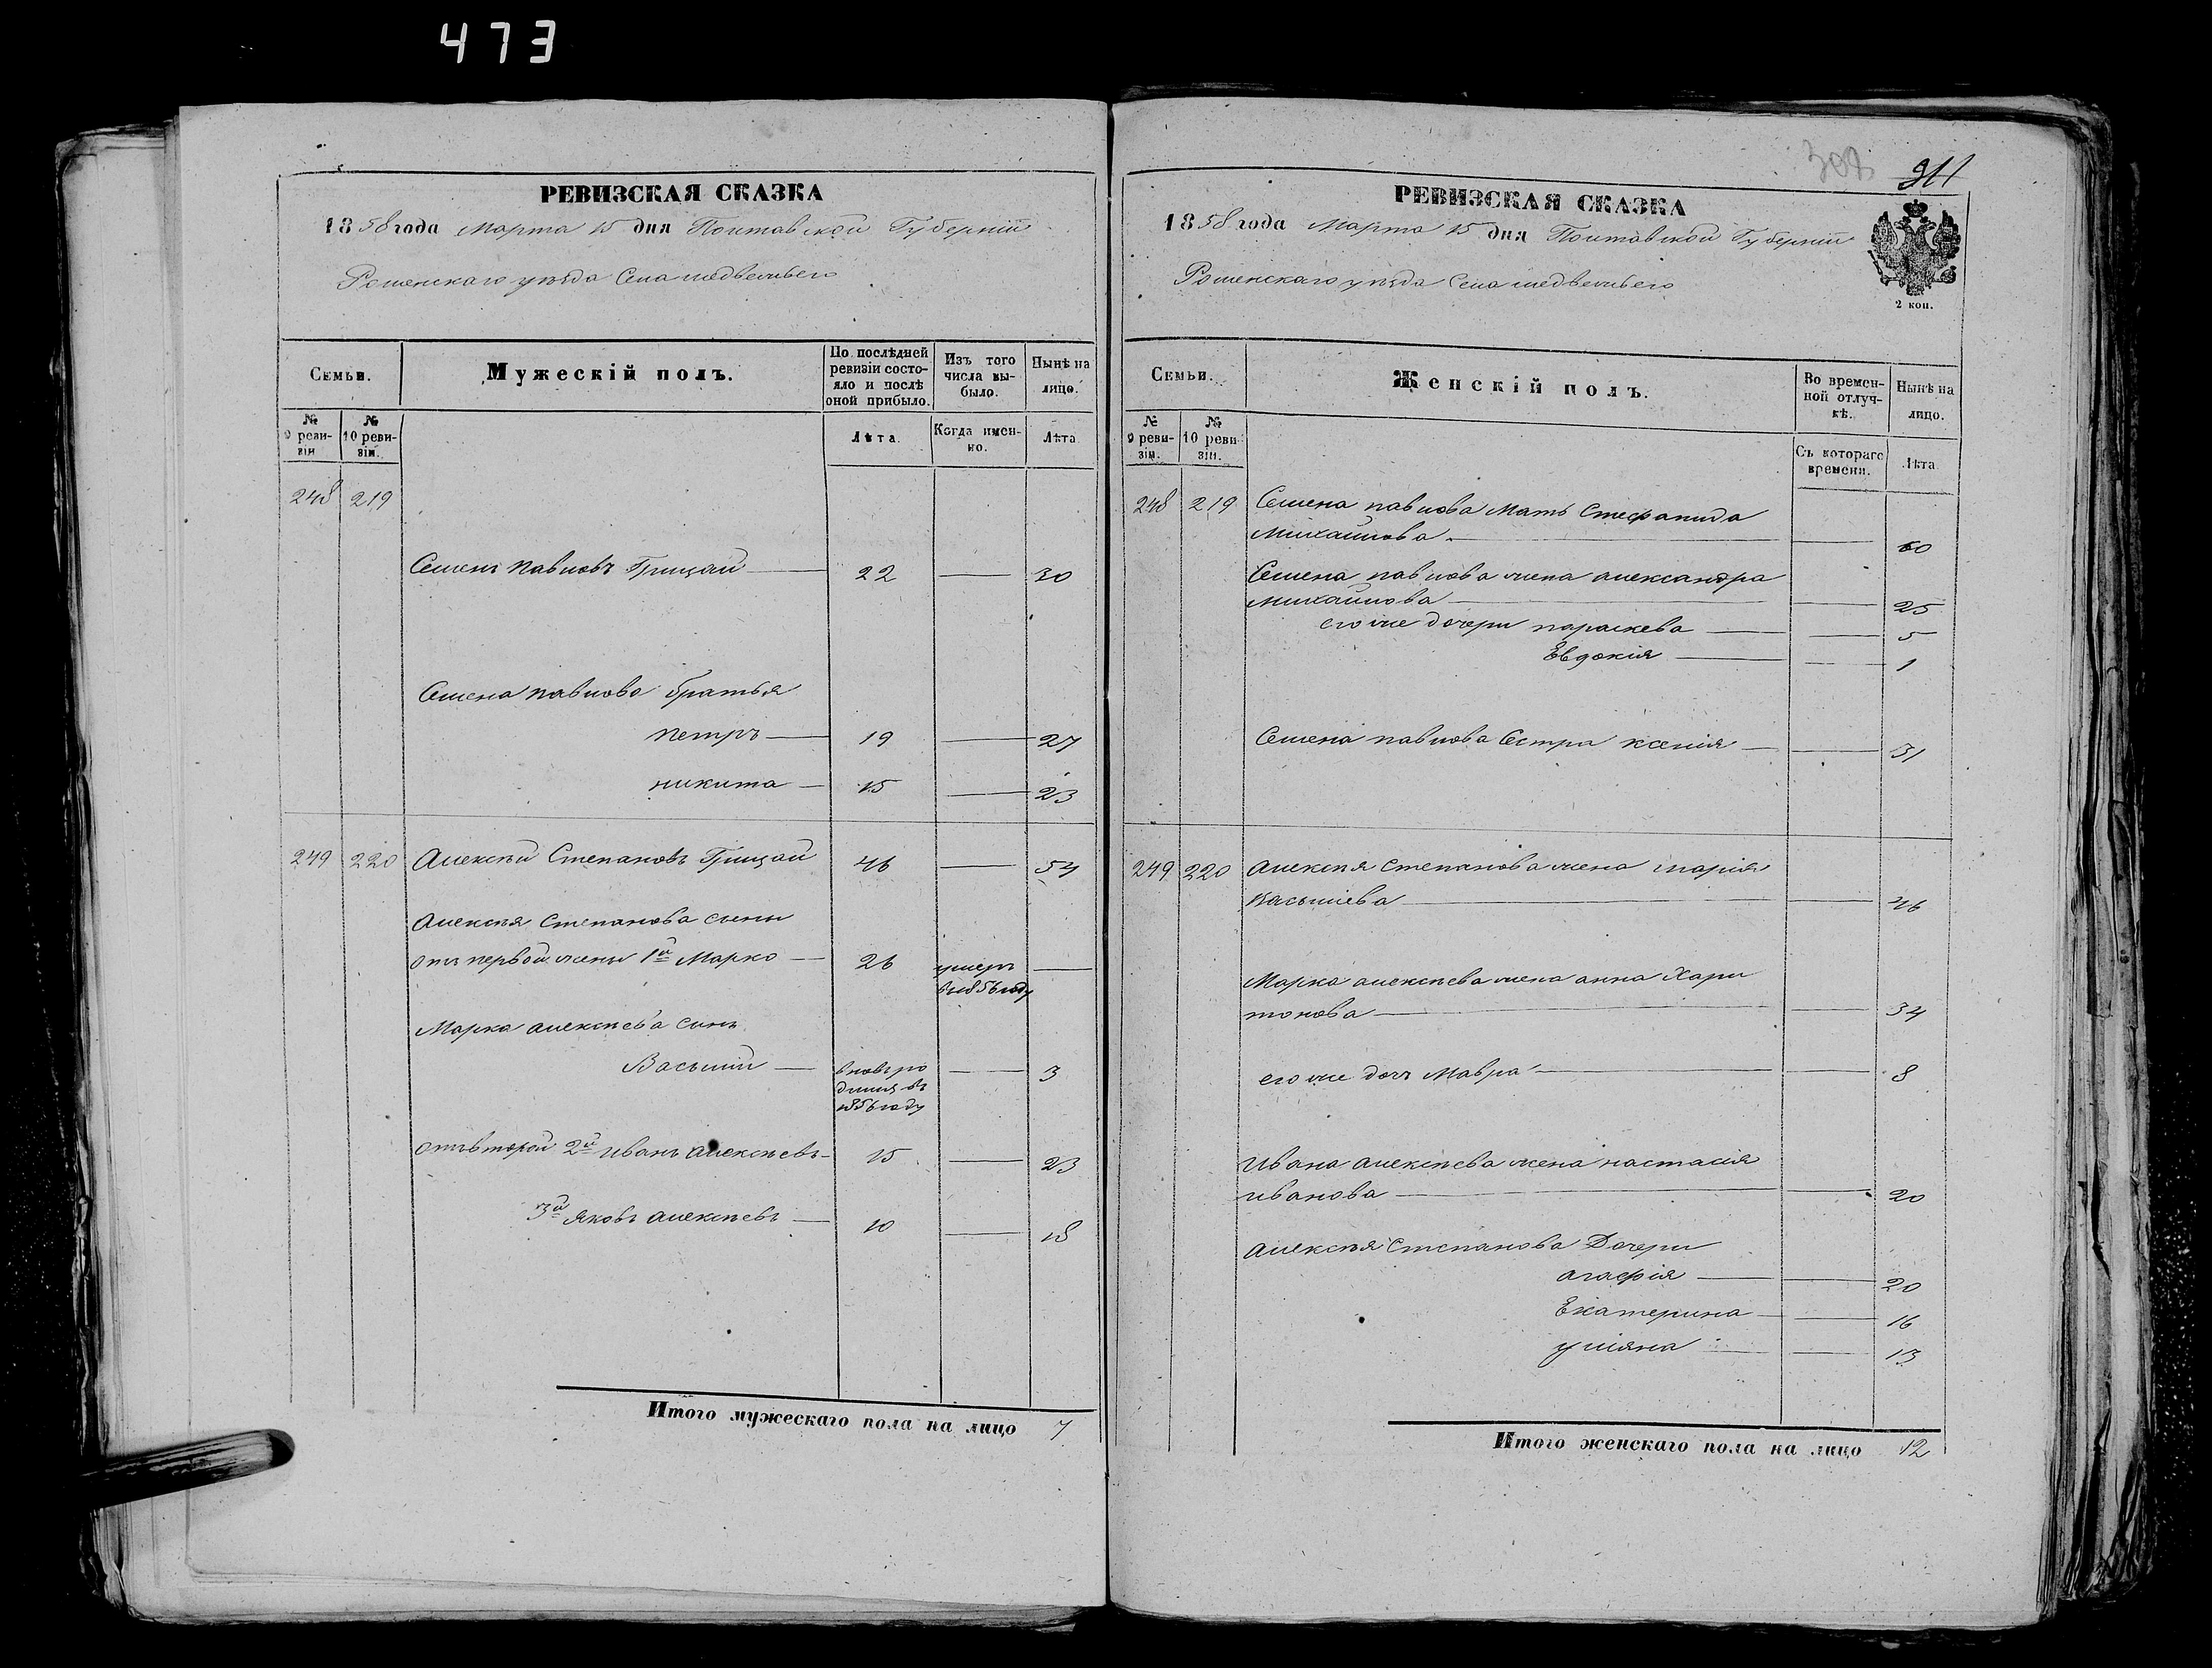 473
РЕВИЗСКАЯ СКАЗКА
1858 года Марта 15 дня Полтавской Губерніи
Роменскаго уѣзда Села медвежьего
Семьи.
Мужескій полъ.
По послѣдней ревизіи состояло и послѣ оной прибыло.
Изъ того числа выбыло.
Нынѣ на лицо.
№ 9 ревизіи
№ 10 ревизіи.
Лѣта.
Когда именно.
Лѣта
248 219
Семенъ Павловъ Грицай — 22 — 30
Семена павлова братья
петръ — 19 — 27
никита — 15 — 23
249 220 Алексѣй Степановъ Грицай 46 — 54
Алексѣя Степанова сыны
отъ первой жены 1й Марко — 26 умеръ —
в 1856 году
Марка алексѣева сынъ
Василій — вновь ро — 3
дился въ
1856 году
отъ второй 2й иванъ алексѣевъ — 15 — 23
3й яковъ алексѣевъ — 10 — 18
Итого мужескаго пола на лицо 7
308 311
РЕВИЗСКАЯ СКАЗКА
1858 года Марта 15 дня Полтавской Губерніи
Роменскаго уѣзда Села медвежьего
2 коп.
Семьи.
Женскій полъ.
Во временной отлучкѣ.
Нынѣ на лицо.
№ 9 ревизіи.
№ 10 ревизіи.
Съ котораго времени.
Лѣта
248 219 Семена павлова Мать Стефанида
Михайлова — — 60
Семена павлова жена александра
михайлова — — 25
его же дочери параскева — — 5
Евдокія — — 1
Семена павлова Сестра ксенія — — 31
249 220 алексѣя степанова жена марія
васильева — — 46
Марка алексѣева жена анна Хари
тонова — — 34
его же дочь Мавра — — 8
ивана алексѣева жена настасія
иванова — — 20
алексѣя степанова Дочери
агафія — — 20
Екатерина — — 16
уліяна — — 13
Итого женскаго пола на лицо 12